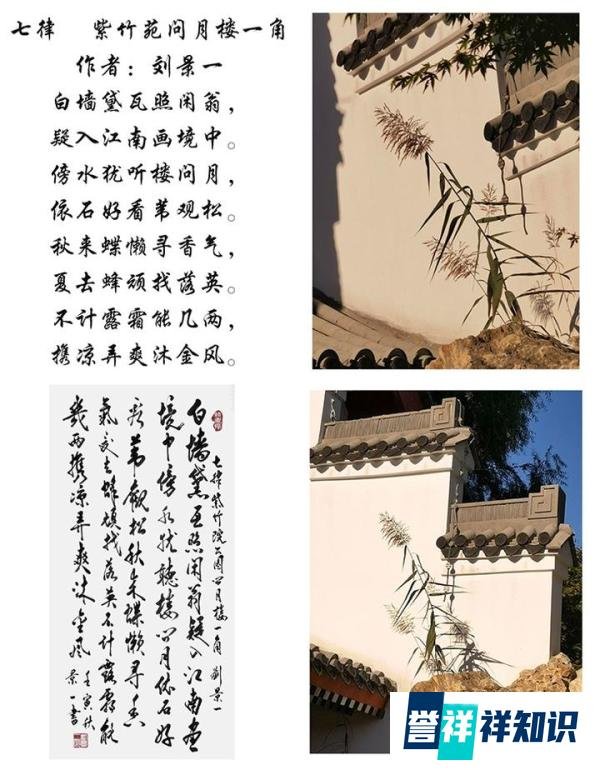 七律 紫竹苑问月楼一角
作者：刘景一
白墙黛瓦照闲翁，
疑入江南画境中。
傍水犹听楼问月，
依石好看苇观松。
秋来蝶懒寻香气，
夏去蜂顽找落英。
不计露霜能几两，
携凉弄爽沐金风。
七律紫竹院公园问月楼一角 刘景一
白墙黛瓦照闲翁疑入江南画
境中傍水犹听楼问月依石好
看苇观松秋来蝶懒寻香
气夏去蜂顽找落英不计露霜能
几两携凉弄爽沐金风
壬寅秋
景一书
誉祥祥知识